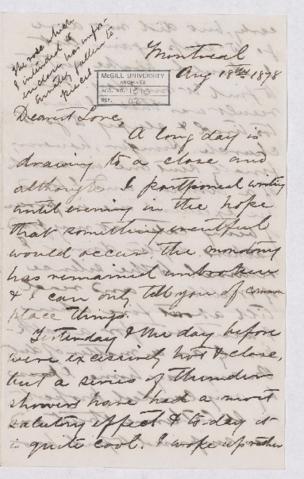 The rose which
intended to
enclose has unfor-
tunately fallen to
pieces
Montreal
Aug 18th 1878
McGILL UNIVERSITY
ARCHIVES
ACC. NO.
REF.
Dearest Love
A long day is
drawing to a close and
although I postponed writing
until evening in the hope
that something eventful
would occur, the monotony
has remained unbroken
& I can only tell you of common
place things.
Yesterday & the day before
were excessively hot & close,
but a series of thunder
showers have had a most
salutary effect & to day it
is quite cool. I woke up rather